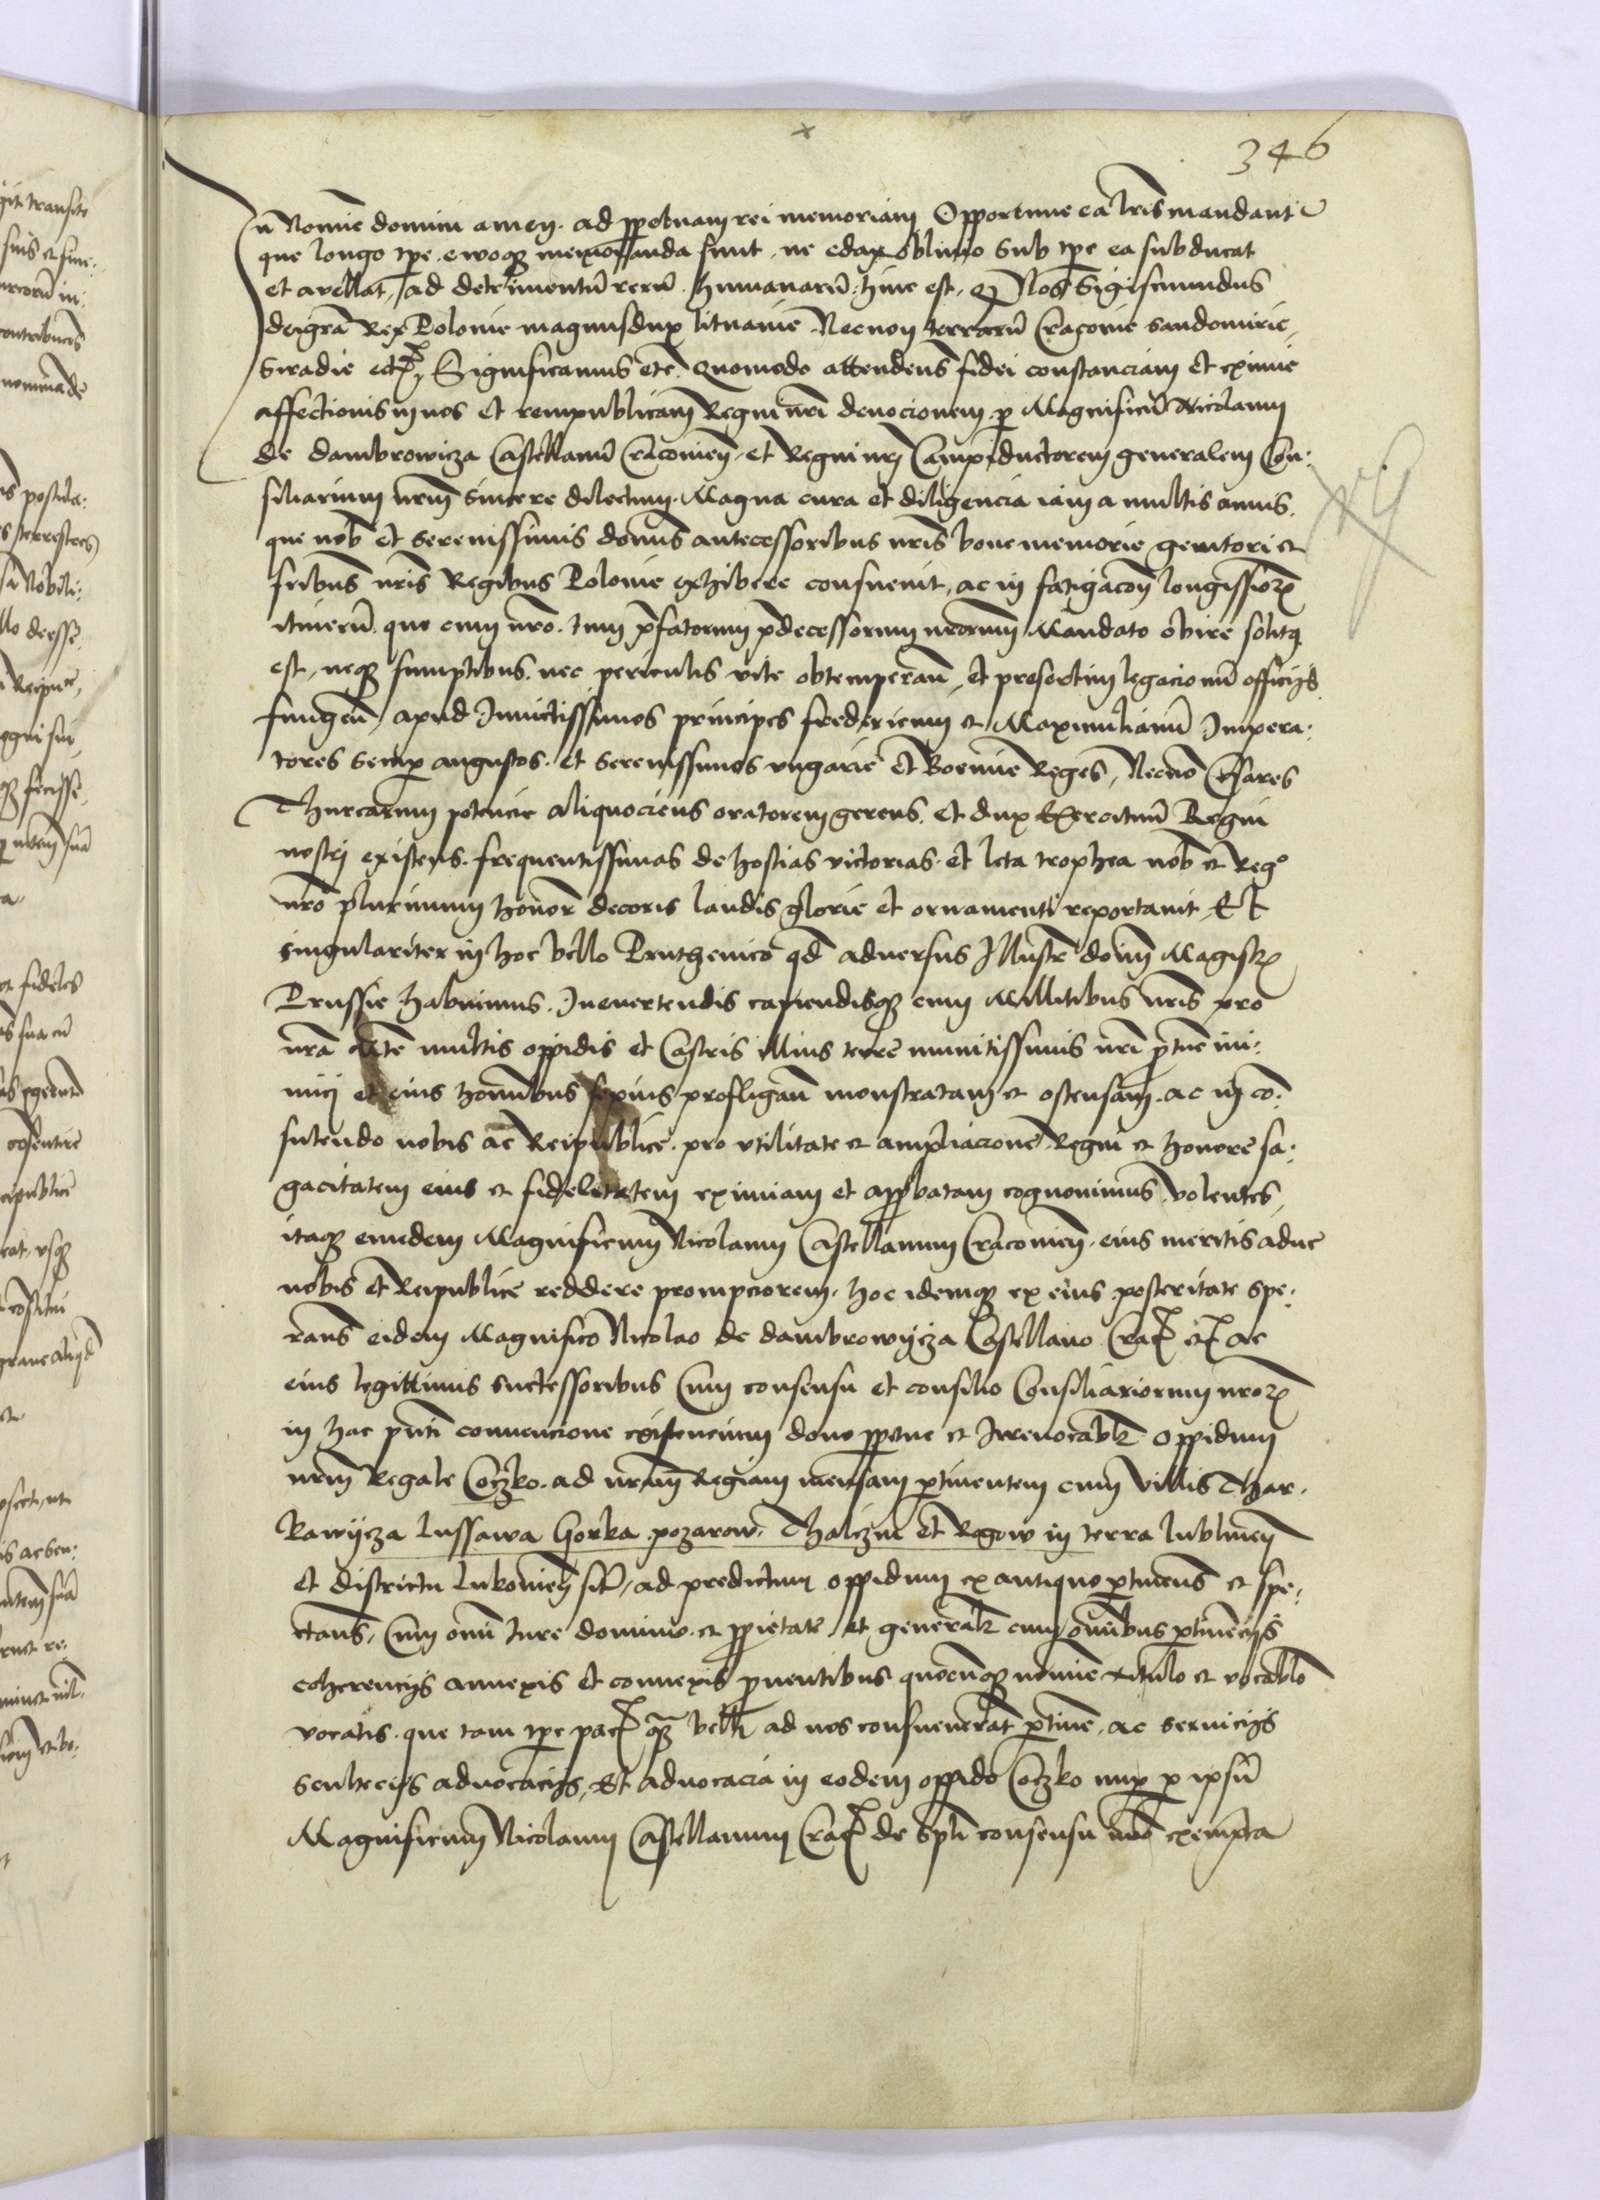 346
In Nomine domini amen. ad perpetuam rei memoriam Opportune ea lris mandant
que longo tpe ewoque memoranda sunt, ne edax oblivio sub tpe ea subducat
et avellat, ad detrimentu reru humanaru: hinc est, Nos Sigismundus
dei gra Rex Polonie magnusdux lituanie Necnon terraru Cracovie Sandomirie,
Siradie etc Significamus etc Quomodo attendens fidei constanciam et eximie
affectionis in nos et rempublicam Regni nri devocionem per Magnificu Nicolaum
de dambrowicza Castellanu Cracovien, et Regni nri Campiductorem generalem Con:
siliarium nrm sincere dilectum, Magna cura et diligencia iam a multis annis,
que nob et serenissimis domis antecessoribus nris bone memorie genitori et
fribus nris Regibus Polonie exhibere consuevit, ac in fatigacon longissior
itineru, que cum nro, tum pfatorum pdecessorum nrorum Mandato obire solita
est, neque sumptibus, nec periculis vite obtemperan, et presertim legacionu officijs
fungen, apud Invictissimos principes fredericum et Maximilianu Impera:
tores semp augustos, et serenissimos vngarie et Boemie Reges, Necno Cesares
Thurcarum potencie aliquociens oratorem gerens, et dux Exercituu Regni
nostri existens, frequentissimas de hostias victorias, et leta trophea nob et Rego
nro plurimum honor decoris laudis glorie et ornamenti reportavit Et
singulariter in hoc bello Pruthenico qd adversus Illustre dom Magistr
Prussie habuimus, In evertendis capiendisque cum Millitibus nris pro
nra multis oppidis et Castris illius terre munitissimis nri ptunc ini:
mici et eius hominibus sepius profligan monstratam et ostensam, ac in co:
sulendo nobis ac Reipublice, pro vtilitate et ampliacione Regni et honore sa:
gacitatem eius et fidelitatem eximiam et approbatam cognovimus, volentes,
itaque eundem Magnificum Nicolaum Castellanum Cracovien, eius meritis aduc
nobis et Reipublice reddere prompciorem, hoc idemque ex eius posteritate spe:
rans eidem Magnifico Nicolao de dambrowijcza Castellano Crac etc ac
eius legittimis successoribus Cum consensu et consilio Consiliariorum nror
in hac pnti convencione existencium dono ppetue et Irrevocablr oppidum
nrm Regale Coczko, ad nram Regiam mensam ptinentem cum Villis Thar,
kawijcza Lussawa Gorka pozarow, Thalczin et Rogow in terra Lublinen
et districtu Lukovien sit, ad predictum oppidum ex antiquo ptinens et spe:
ctans, Cum omi Iure dominio, et proprietate, et generalr cum omibus ptinencijs
coherencijs annexis et connexis proventibus quocunque nomine titulo et vocablo
vocatis, que tam tpe pac quam belli ad nos consueverat ptine, ac servicijs
scultecijs advocacijs, Et advocacia in eodem oppido Coczko nup p ipsu
Magnificum Nicolaum Castellanum Crac de spli consensu nro exempta